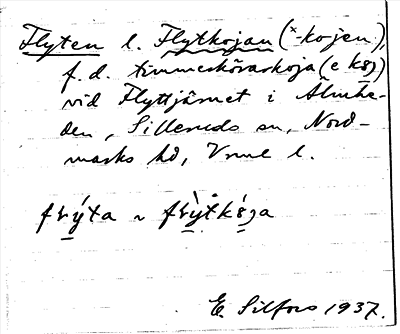 Flyten l. Flytkojan (x-kojen),
f.d. timmerkörarkoja (e k8j)
vid Flyttjärnet i Älmhe-
den, Silleruds sn, Nord-
marks hd, Vrml l.
frýta ~ frỳtk8ja
E. Silfors 1937.